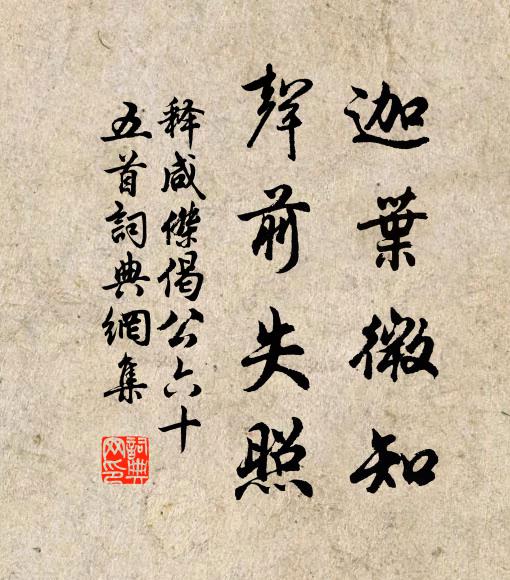 迦葉微知
聲前失照
释咸傑偈公六十
五首詞典網集
詞典网印